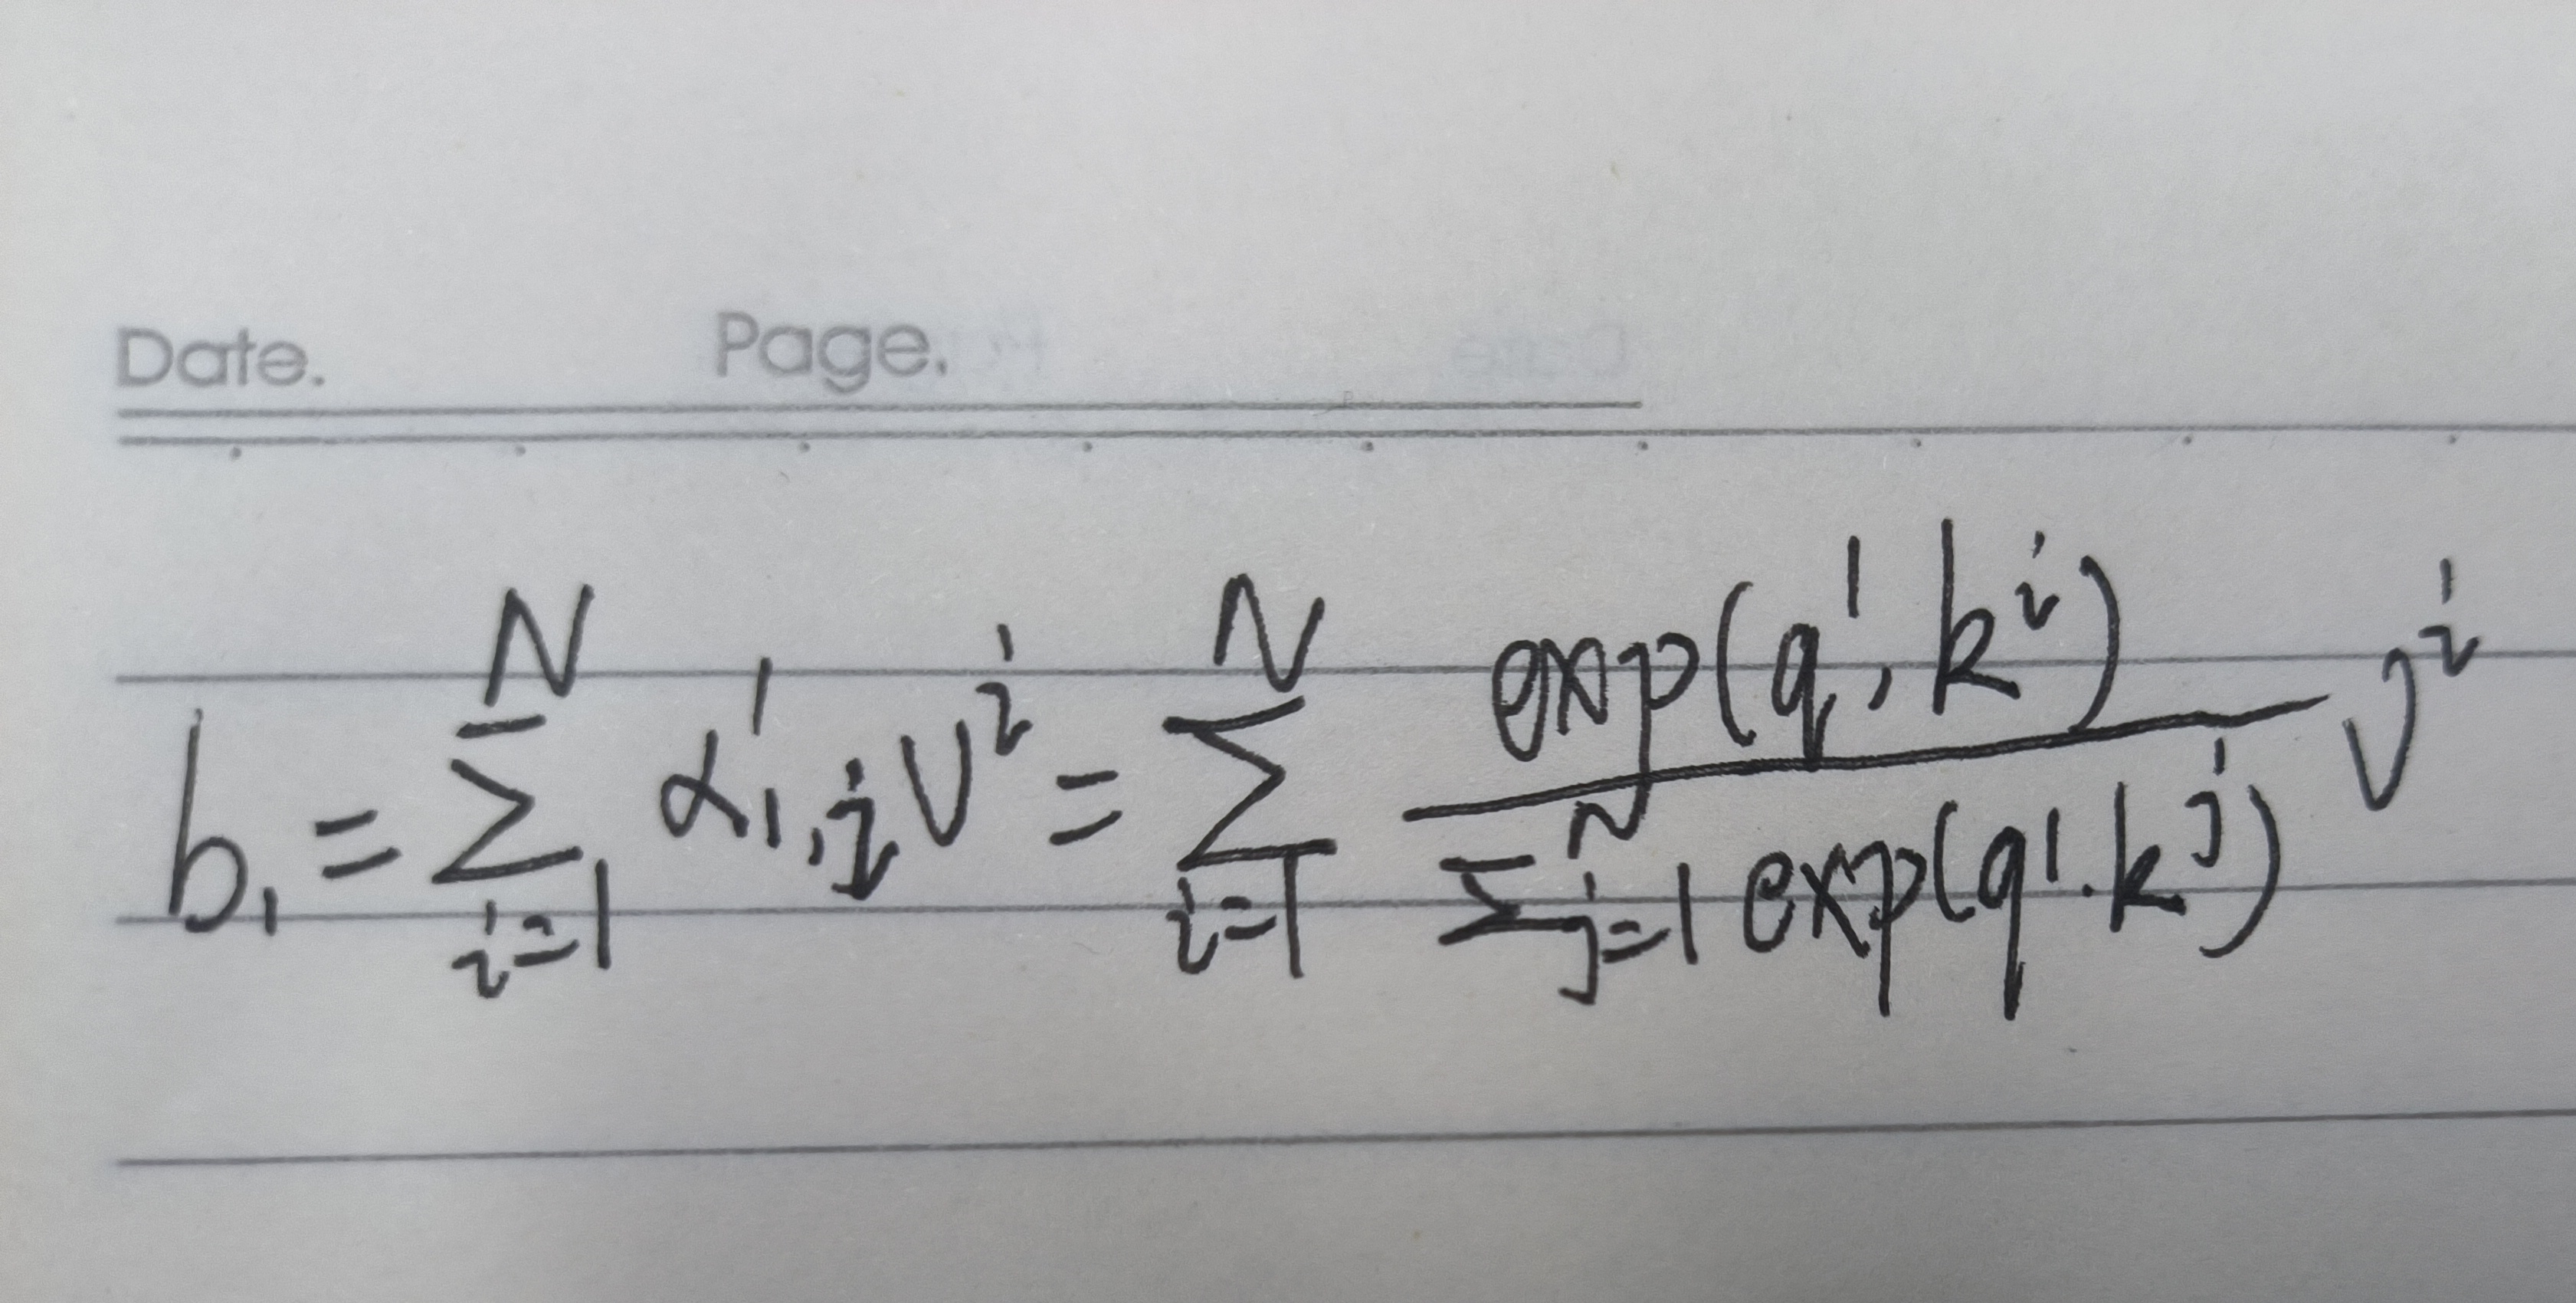 Date. Page.
b₁ = \sum_{i=1}^{N} α'_{1,i} v^{i} = \sum_{i=1}^{N} \frac{exp(q^{1}, k^{i})}{\sum_{j=1}^{N} exp(q^{1}. k^{j})} v^{i}